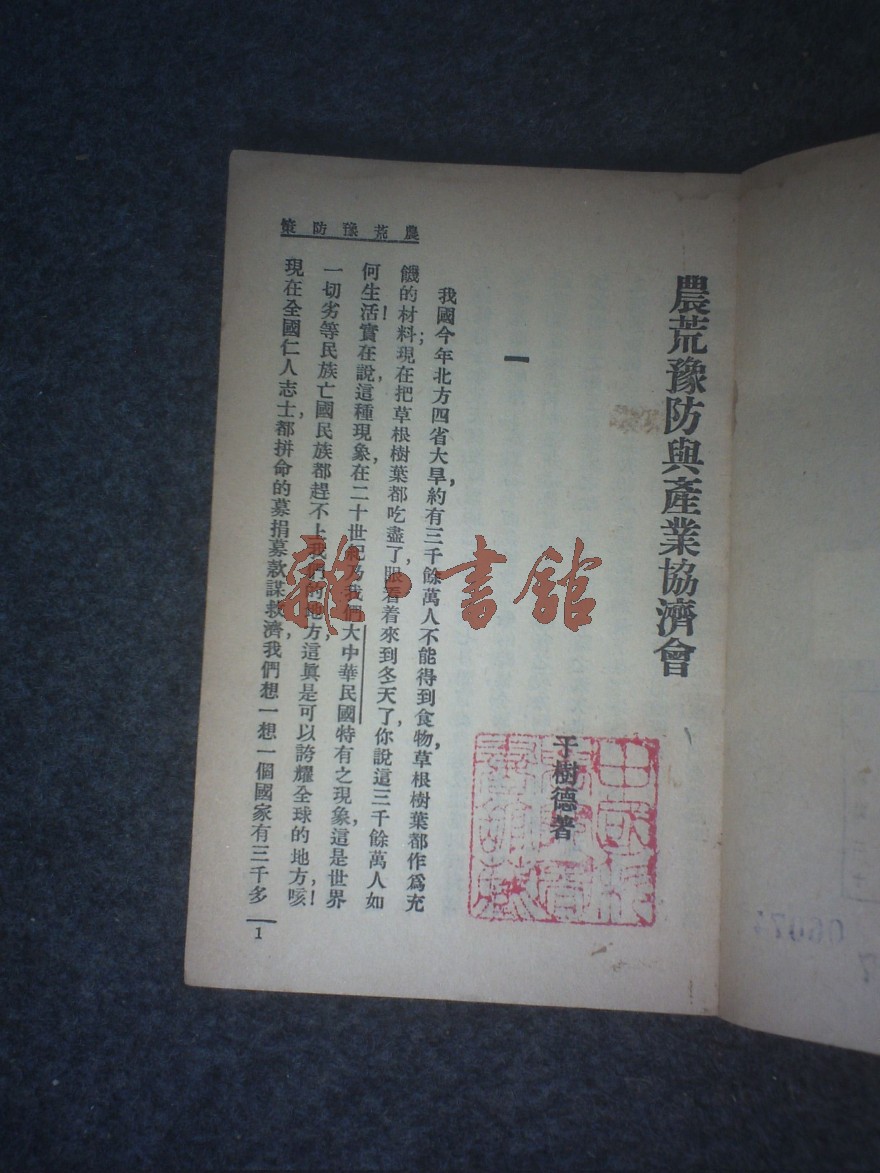 農荒豫防與產業協濟會
于樹德著
一
我國今年北方四省大旱，約有三千餘萬人不能得到食物，草根樹葉都作爲充
饑的材料；現在把草根樹葉都吃盡了，眼看着來到冬天了，你說這三千餘萬人如
何生活！實在說，這種現象，在二十世紀乃我們大中華民國特有之現象，這是世界
一切劣等民族亡國民族都趕不上我們的地方，這眞是可以誇耀全球的地方，咳！
現在全國仁人志士，都拼命的募捐募款，謀救濟，我們想一想，一個國家有三千多
農荒豫防策
1
雜·書館